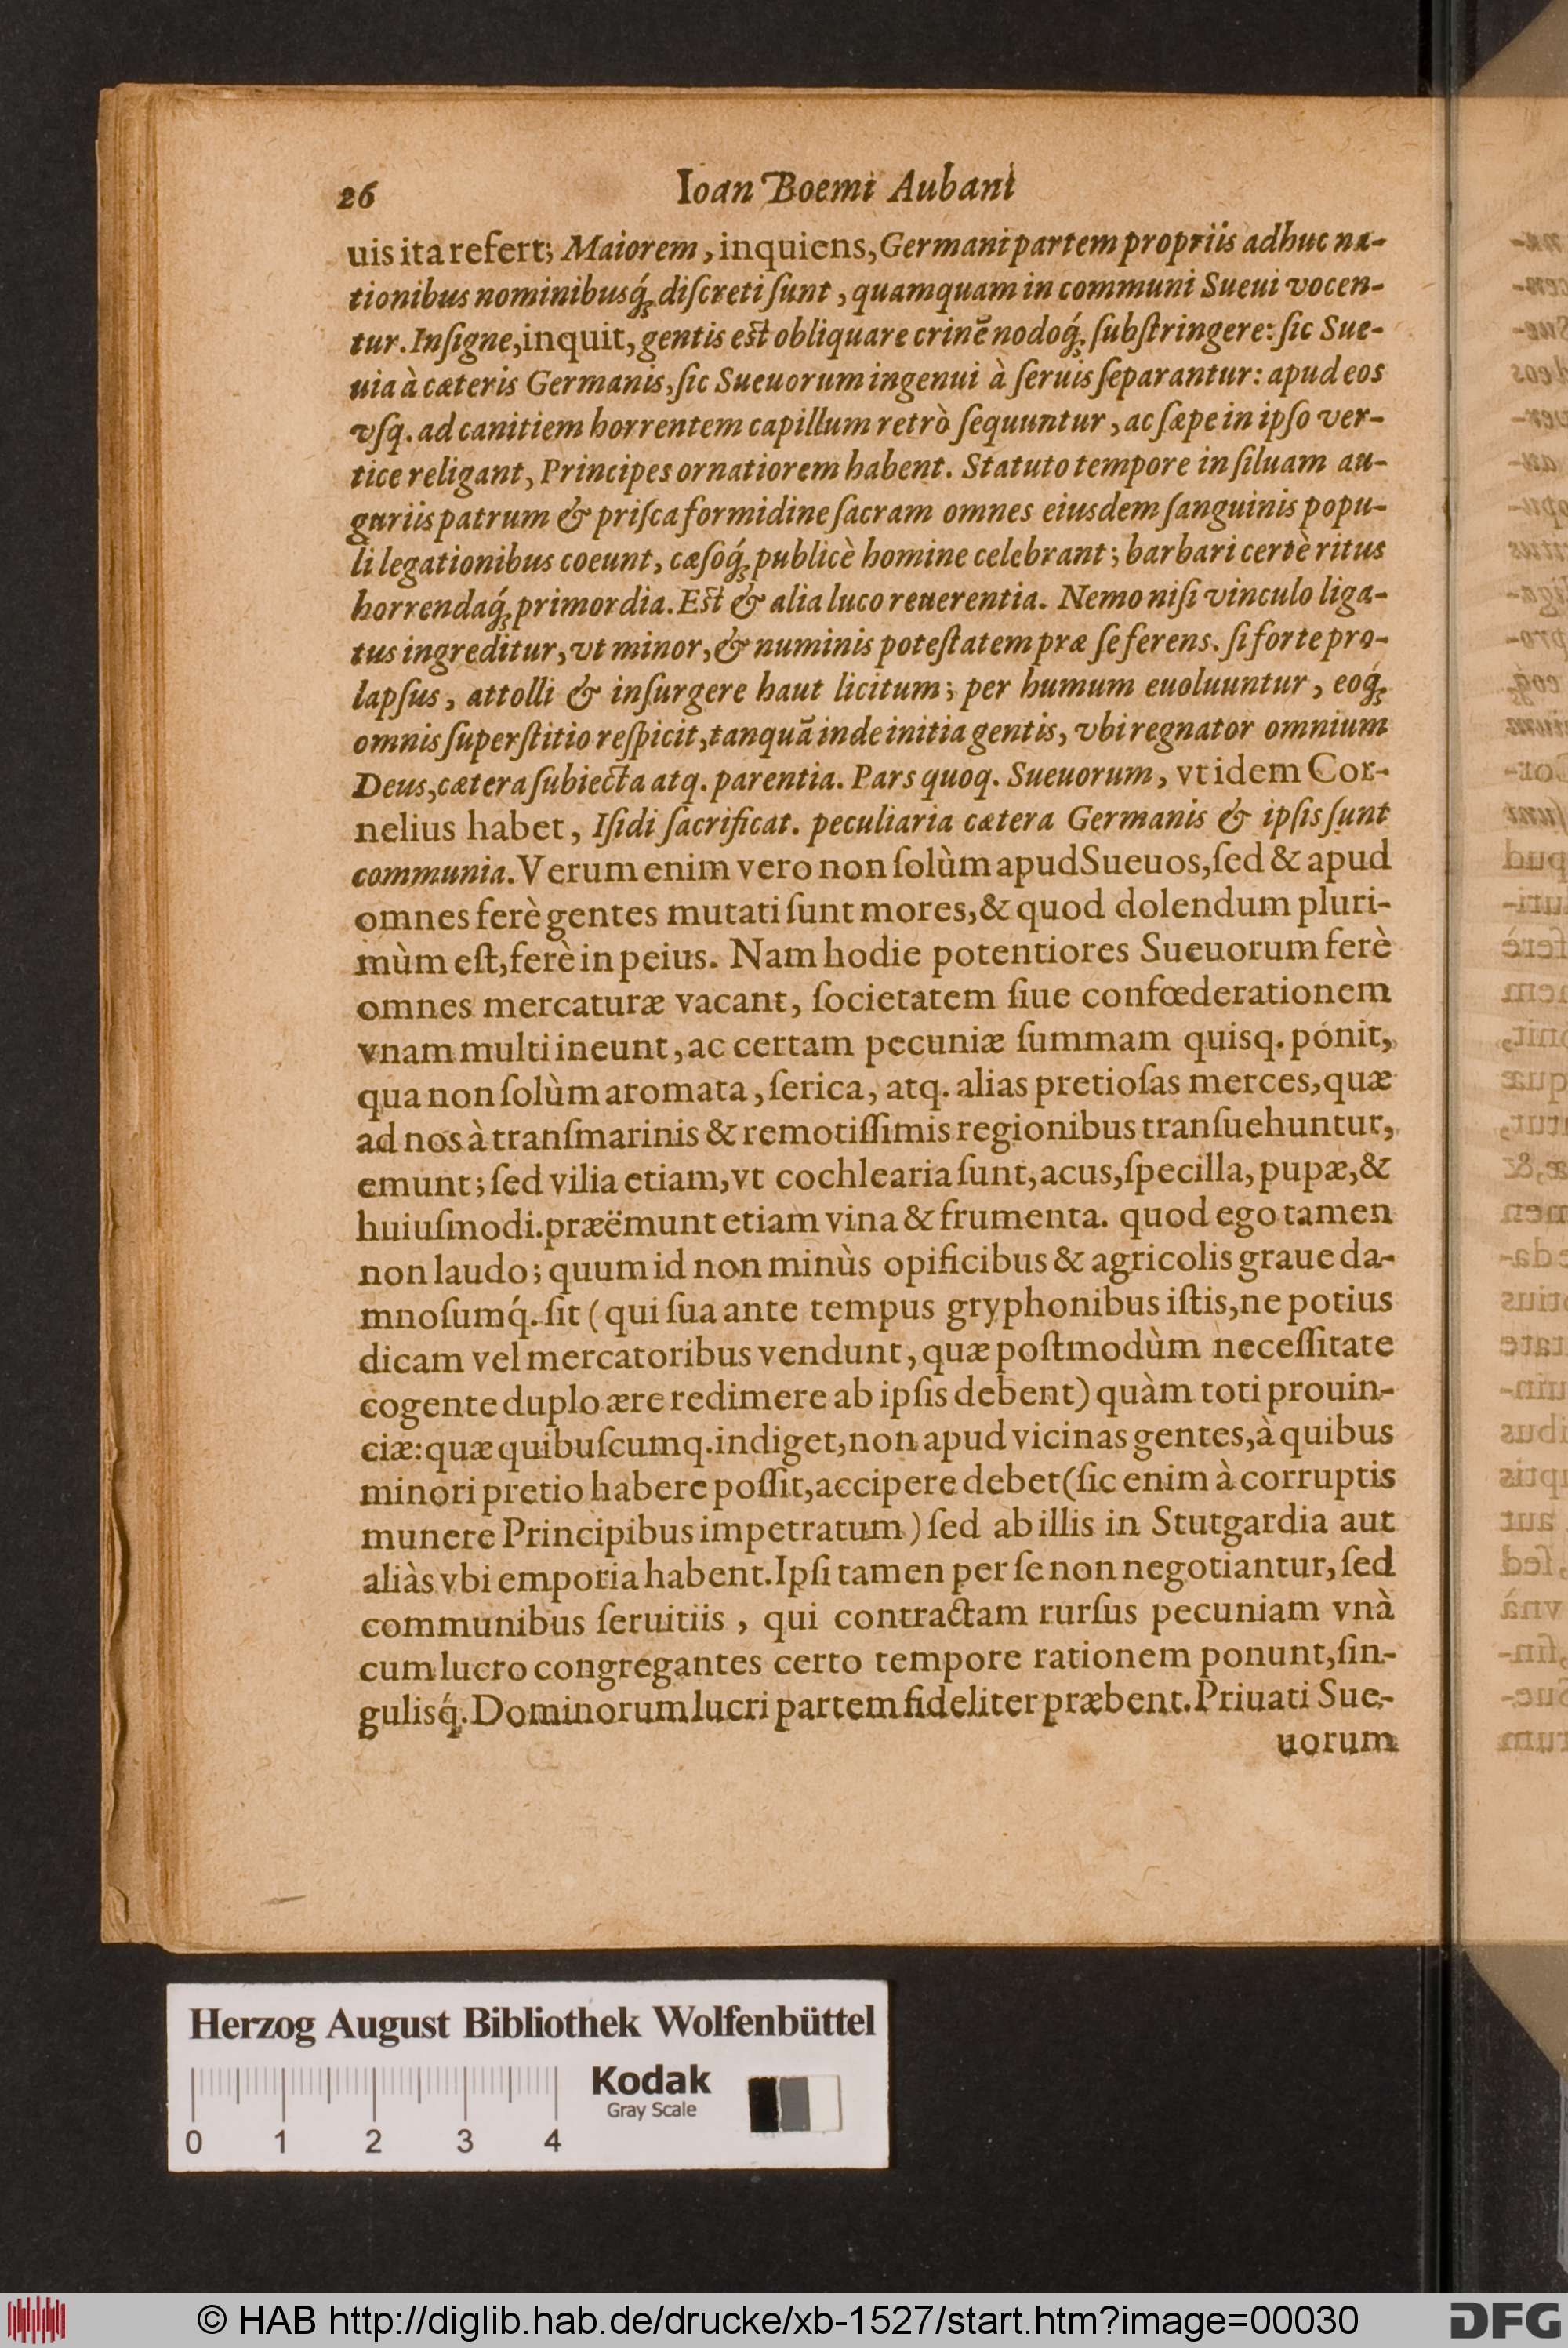 26 Ioan Boemi Aubani
uis ita refert; Maiorem, inquiens, Germani partem propriis adhuc na-
tionibus nominibusq́; diſcreti ſunt, quamquam in communi Sueui vocen-
tur. Inſigne, inquit, gentis eſt obliquare crinē nodoq́; ſubſtringere: ſic Sue-
uia à cæteris Germanis, ſic Sueuorum ingenui à ſeruis ſeparantur: apud eos
vſq. ad canitiem horrentem capillum retrò ſequuntur, ac ſæpe in ipſo ver-
tice religant, Principes ornatiorem habent. Statuto tempore in ſiluam au-
guriis patrum & priſca formidine ſacram omnes eiusdem ſanguinis popu-
li legationibus coeunt, cæſoq́; publicè homine celebrant; barbari certè ritus
horrendaq́; primordia. Eſt & alia luco reuerentia. Nemo niſi vinculo liga-
tus ingreditur, vt minor, & numinis poteſtatem præ ſe ferens. ſi forte pro-
lapſus, attolli & inſurgere haut licitum; per humum euoluuntur, eoq́;
omnis ſuperſtitio reſpicit, tanquā inde initia gentis, vbi regnator omnium
Deus, cætera ſubiecta atq. parentia. Pars quoq. Sueuorum, vt idem Cor-
nelius habet, Iſidi ſacrificat. peculiaria cætera Germanis & ipſis ſunt
communia. Verum enim vero non ſolùm apud Sueuos, ſed & apud
omnes ferè gentes mutati ſunt mores, & quod dolendum pluri-
mùm eſt, ferè in peius. Nam hodie potentiores Sueuorum ferè
omnes mercaturæ vacant, ſocietatem ſiue confœderationem
vnam multi ineunt, ac certam pecuniæ ſummam quisq. ponit,
qua non ſolùm aromata, ſerica, atq. alias pretioſas merces, quæ
ad nos à tranſmarinis & remotiſſimis regionibus tranſuehuntur,
emunt; ſed vilia etiam, vt cochlearia ſunt, acus, ſpecilla, pupæ, &
huiuſmodi. præëmunt etiam vina & frumenta. quod ego tamen
non laudo; quum id non minùs opificibus & agricolis graue da-
mnoſumq́. ſit (qui ſua ante tempus gryphonibus iſtis, ne potius
dicam vel mercatoribus vendunt, quæ poſtmodùm neceſſitate
cogente duplo ære redimere ab ipſis debent) quàm toti prouin-
ciæ: quæ quibuſcumq. indiget, non apud vicinas gentes, à quibus
minori pretio habere poſſit, accipere debet (ſic enim à corruptis
munere Principibus impetratum) ſed ab illis in Stutgardia aut
aliàs vbi emporia habent. Ipſi tamen per ſe non negotiantur, ſed
communibus ſeruitiis, qui contractam rurſus pecuniam vnà
cum lucro congregantes certo tempore rationem ponunt, ſin-
gulisq́. Dominorum lucri partem fideliter præbent. Priuati Sue-
uorum
Herzog August Bibliothek Wolfenbüttel
Kodak
Gray Scale
0 1 2 3 4
© HAB http://diglib.hab.de/drucke/xb-1527/start.htm?image=00030
DFG